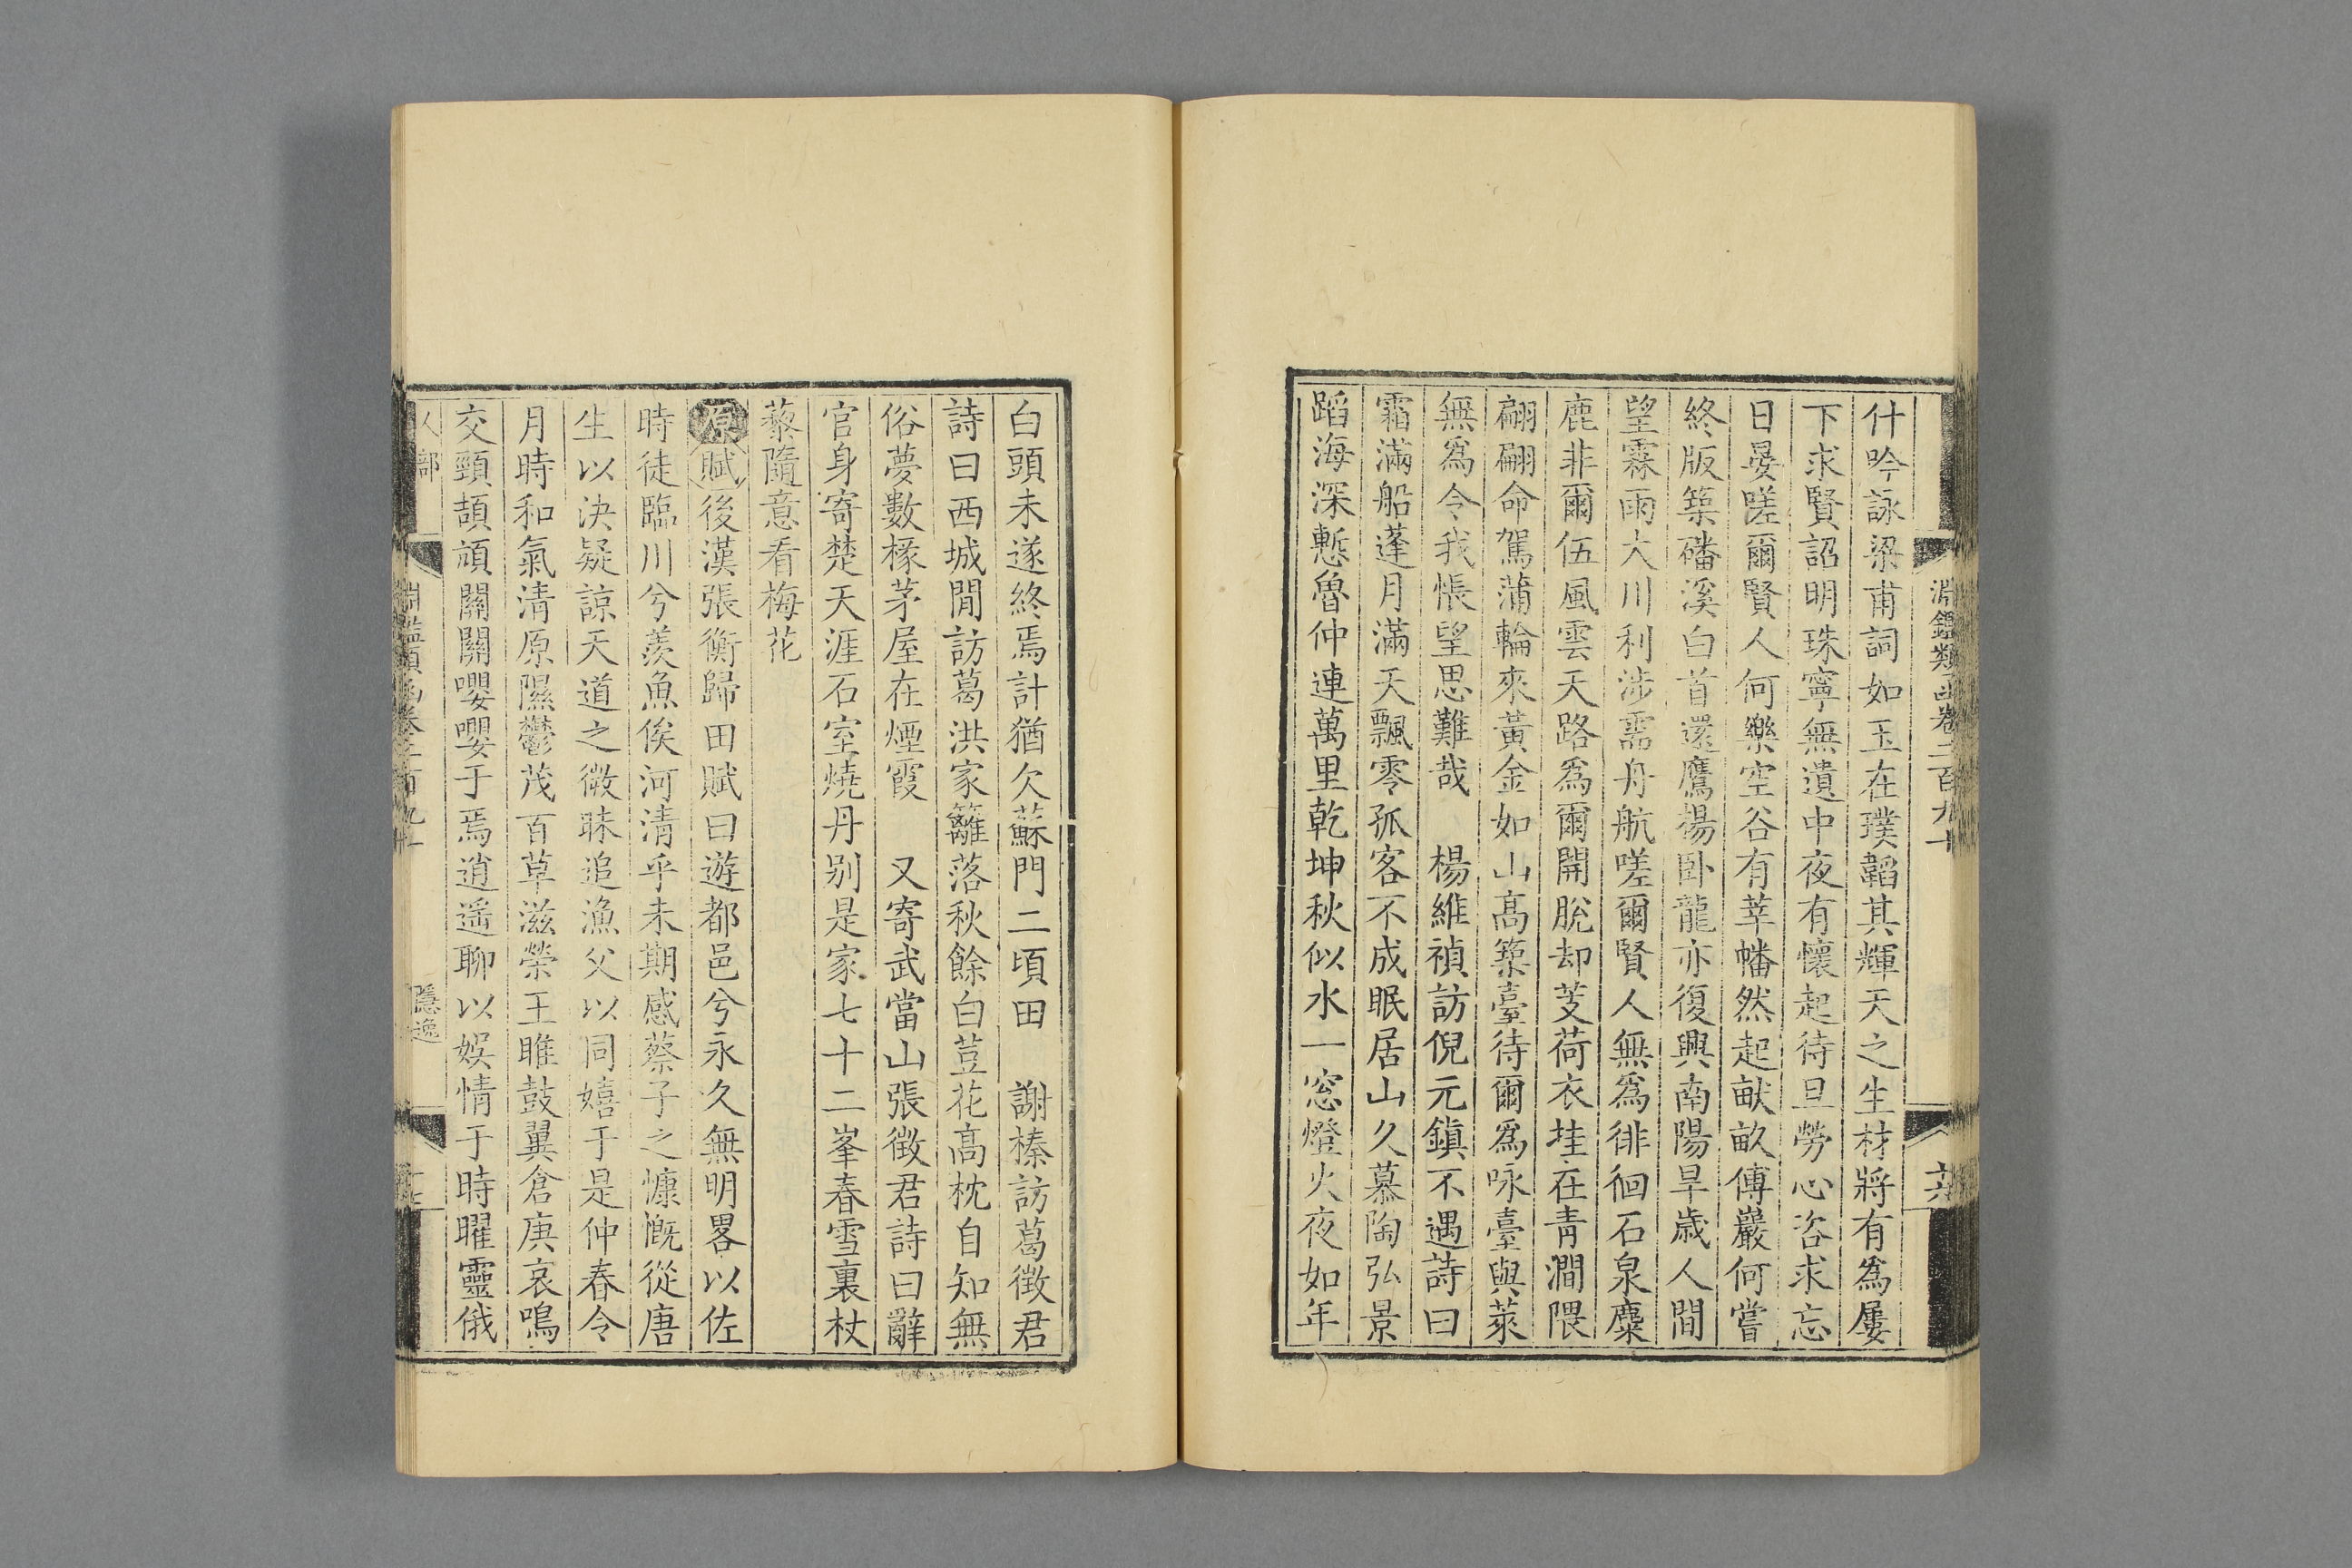 淵鑑類函卷二百九十
什吟詠梁甫詞如玉在璞韜其輝天之生材將有爲屢
下求賢詔明珠寧無遺中夜有懷起待旦勞心咨求忘
日晏嗟爾賢人何樂空谷有莘幡然起畎畝傅巖何嘗
終版築磻溪白首還鷹揚卧龍亦復興南陽旱歳人間
望霖雨大川利涉需舟航嗟爾賢人無爲徘徊石泉麋
鹿非爾伍風雲天路爲爾開脫却芰荷衣挂在青澗隈
翩翩命駕蒲輪來黃金如山高築臺待爾爲咏臺與萊
無爲令我悵望思難哉　楊維禎訪倪元鎮不遇詩曰
霜滿船蓬月滿天飄零孤客不成眠居山久慕陶弘景
蹈海深慙魯仲連萬里乾坤秋似水一窓燈火夜如年
白頭未遂終焉計猶欠蘇門二頃田　謝榛訪葛徵君
詩曰西城閒訪葛洪家籬落秋餘白荳花高枕自知無
俗夢數椽茅屋在煙霞　又寄武當山張徵君詩曰辭
官身寄楚天涯石室燒丹别是家七十二峯春雪裏杖
藜隨意看梅花
原賦後漢張衡歸田賦曰遊都邑兮永久無明畧以佐
時徒臨川兮羨魚俟河清乎未期感蔡子之慷慨從唐
生以決疑諒天道之微昧追漁父以同嬉于是仲春令
月時和氣清原隰鬱茂百草滋榮王雎鼓翼倉庚哀鳴
交頸頡頏關關嚶嚶于焉逍遥聊以娛情于時曜靈俄
人部
隱逸